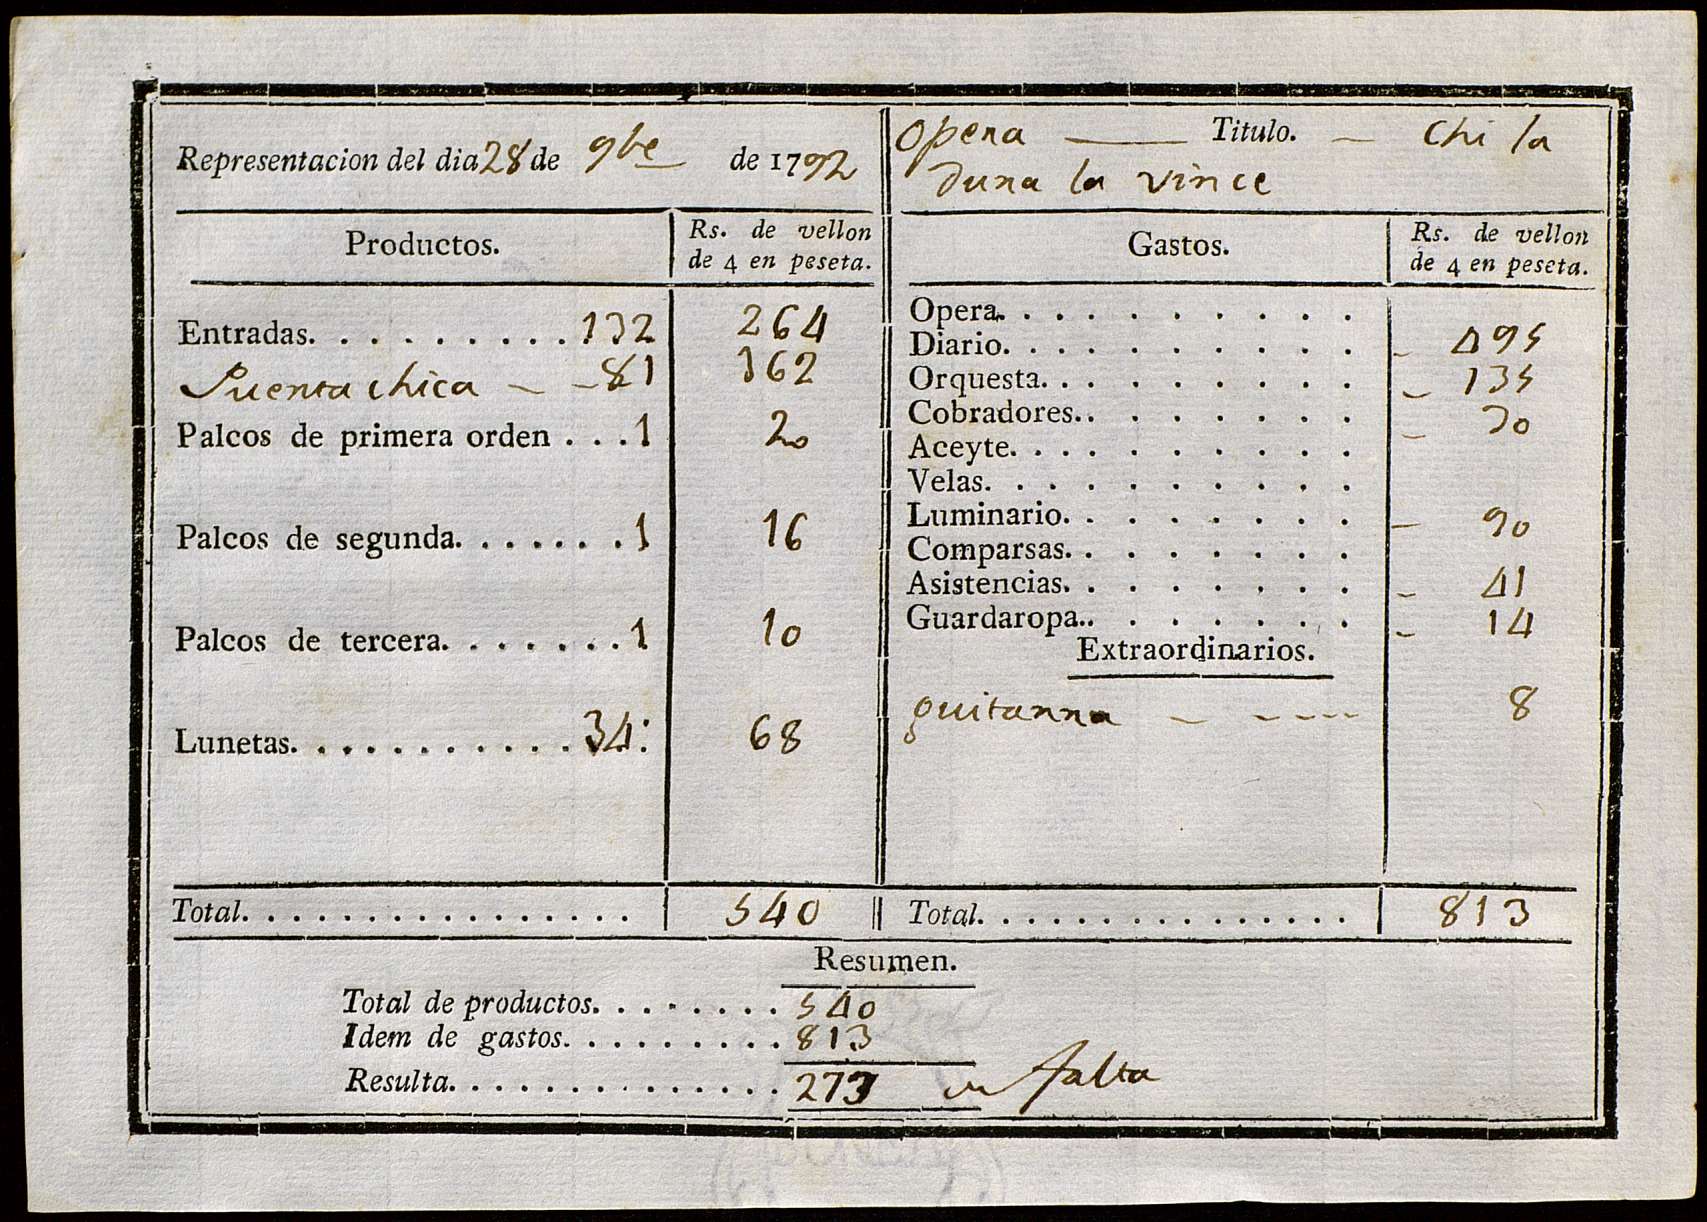 Representacion del dia 28 de 9bre de 1792
Productos. Rs. de vellon de 4 en peseta.
Entradas. . . . . . . . . 132 264
Puerta chica - - 81 162
Palcos de primera orden . . . 1 20
Palcos de segunda. . . . . . . 1 16
Palcos de tercera. . . . . . . 1 10
Lunetas. . . . . . . . . . . 34. 68
Total. . . . . . . . . . . . . . . . 540
Opera — Titulo. — Chi la
dura la vince
Gastos. Rs. de vellon de 4 en peseta.
Opera. . . . . . . . . .
Diario. . . . . . . . . . - 495
Orquesta. . . . . . . . . - 135
Cobradores. . . . . . . . - 30
Aceyte. . . . . . . . . .
Velas. . . . . . . . . .
Luminario. . . . . . . . - 90
Comparsas. . . . . . . .
Asistencias. . . . . . . . - 41
Guardaropa. . . . . . . . - 14
Extraordinarios.
guitarra - - - - - 8
Total. . . . . . . . . . . . . . . . 813
Resumen.
Total de productos. . . . . . . . 540
Idem de gastos. . . . . . . . . 813
Resulta. . . . . . . . . . . . . . 273 falta